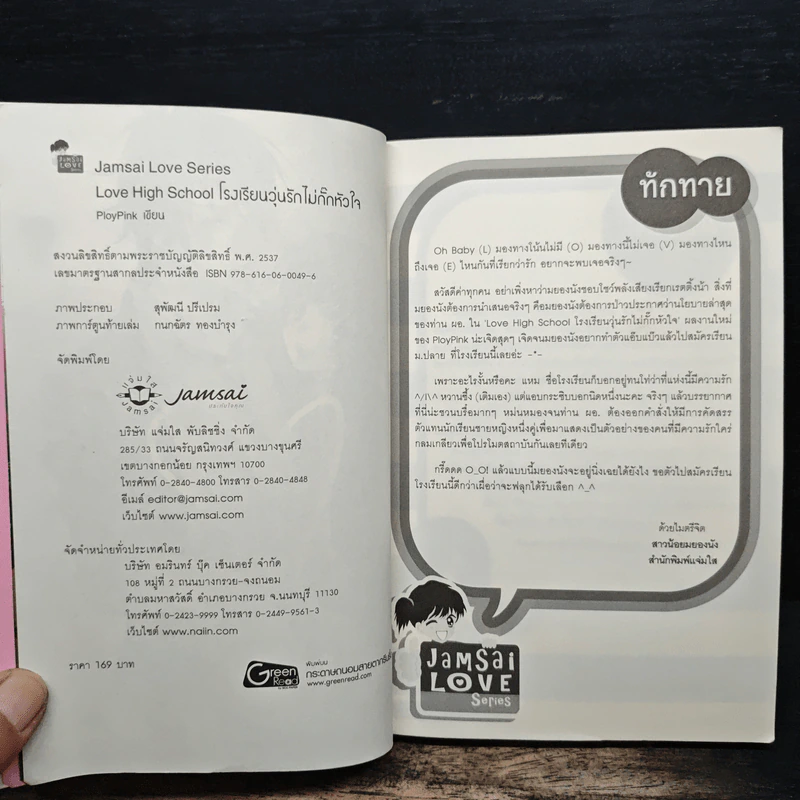 JAMSAI
LOVE
Series
Jamsai Love Series
Love High School โรงเรียนวุ่นรักไม่กั๊กหัวใจ
PloyPink เขียน
สงวนลิขสิทธิ์ตามพระราชบัญญัติลิขสิทธิ์ พ.ศ. 2537
เลขมาตรฐานสากลประจำหนังสือ ISBN 978-616-06-0049-6
ภาพประกอบ สุพัฒนี ปรีเปรม
ภาพการ์ตูนท้ายเล่ม กนกฉัตร ทองบำรุง
จัดพิมพ์โดย
แจ่มใส
Jamsai
Jamsai
บริษัท แจ่มใส พับลิชชิ่ง จำกัด
285/33 ถนนจรัญสนิทวงศ์ แขวงบางขุนศรี
เขตบางกอกน้อย กรุงเทพฯ 10700
โทรศัพท์ 0-2840-4800 โทรสาร 0-2840-4848
อีเมล์ editor@jamsai.com
เว็บไซต์ www.jamsai.com
จัดจำหน่ายทั่วประเทศโดย
บริษัท อมรินทร์ บุ๊ค เซ็นเตอร์ จำกัด
108 หมู่ที่ 2 ถนนบางกรวย-จงถนอม
ตำบลมหาสวัสดิ์ อำเภอบางกรวย จ.นนทบุรี 11130
โทรศัพท์ 0-2423-9999 โทรสาร 0-2449-9561-3
เว็บไซต์ www.naiin.com
ราคา 169 บาท
Green
Read
พิมพ์บน
กระดาษถนอมสายตากรีนรี้ด
www.greenread.com
ทักทาย
Oh Baby (L) มองทางโน้นไม่มี (O) มองทางนี้ไม่เจอ (V) มองทางไหน
ถึงเจอ (E) ไหนกันที่เรียกว่ารัก อยากจะพบเจอจริงๆ~
สวัสดีค่าทุกคน อย่าเพิ่งหาว่ามยองนังชอบโชว์พลังเสียงเรียกเรตติ้งน้า สิ่งที่
มยองนังต้องการนำเสนอจริงๆ คือมยองนังต้องการป่าวประกาศว่านโยบายล่าสุด
ของท่าน ผอ. ใน 'Love High School โรงเรียนวุ่นรักไม่กั๊กหัวใจ' ผลงานใหม่
ของ PloyPink น่ะเจิดสุดๆ เจิดจนมยองนังอยากทำตัวแอ๊บแบ๊วแล้วไปสมัครเรียน
ม.ปลาย ที่โรงเรียนนี้เลยอ่ะ -*-
เพราะอะไรงั้นหรือคะ แหม ชื่อโรงเรียนก็บอกอยู่ทนโท่ว่าที่แห่งนี้มีความรัก
^/l\^ หวานซึ้ง (เติมเอง) แต่แอบกระซิบบอกนิดหนึ่งนะคะ จริงๆ แล้วบรรยากาศ
ที่นี่น่ะชวนบรื้อมากๆ หม่นหมองจนท่าน ผอ. ต้องออกคำสั่งให้มีการคัดสรร
ตัวแทนนักเรียนชายหญิงหนึ่งคู่เพื่อมาแสดงเป็นตัวอย่างของคนที่มีความรักใคร่
กลมเกลียวเพื่อโปรโมตสถาบันกันเลยทีเดียว
กรี๊ดดด O_O! แล้วแบบนี้มยองนังจะอยู่นิ่งเฉยได้ยังไง ขอตัวไปสมัครเรียน
โรงเรียนนี้ดีกว่าเผื่อว่าจะฟลุกได้รับเลือก ^_^
ด้วยไมตรีจิต
สาวน้อยมยองนัง
สำนักพิมพ์แจ่มใส
JAMSAI
LOVE
Series